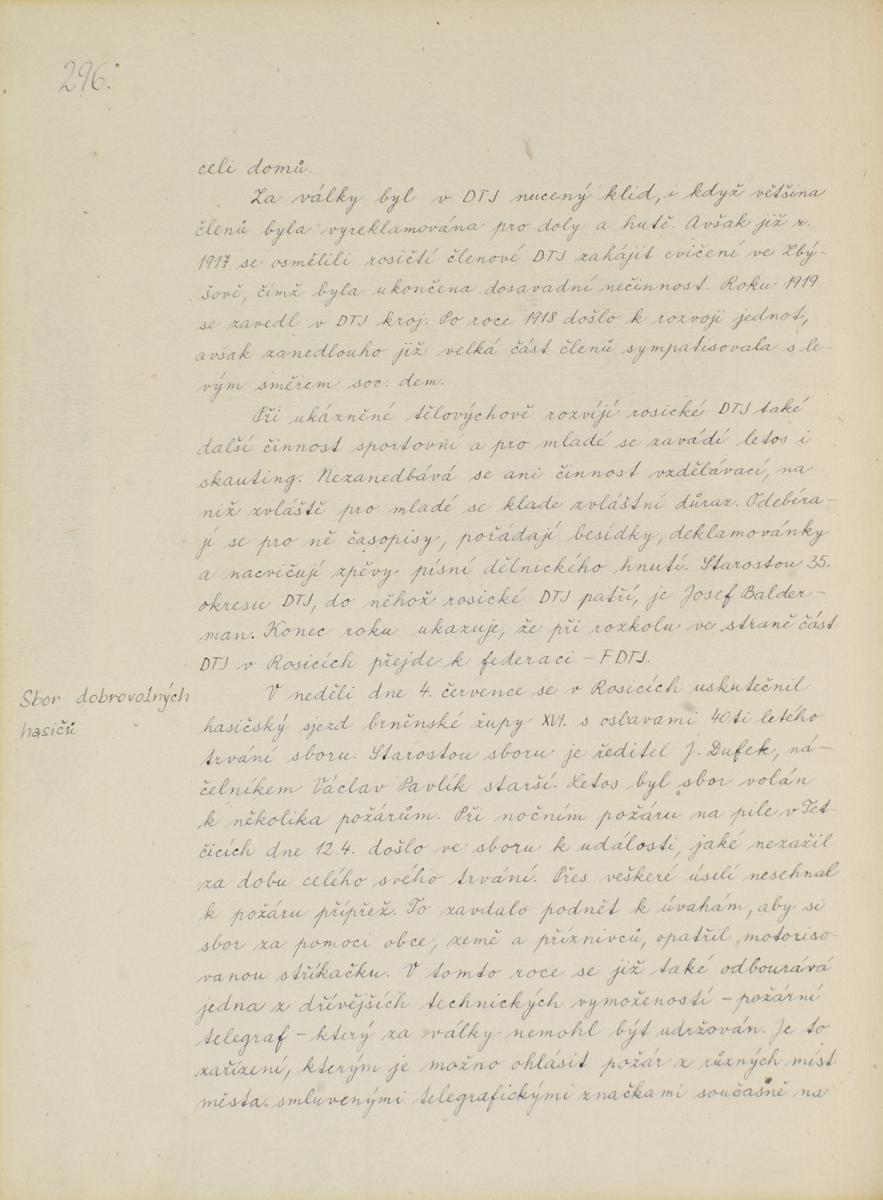 296.
celi domů.
Za války byl v DTJ nucený klid, i když většina
členů byla vyreklamována pro doly a hutě. Avšak již r.
1917 se osmělili rosičtí členové DTJ zahájit cvičení ve Zbý-
šově, čímž byla ukončena dosavadní nečinnost. Roku 1919
se zavedl v DTJ kroj. Po roce 1918 došlo k rozvoji jednot,
avšak zanedlouho již velká část členů sympatisovala s le-
vým směrem soc. dem.
Při ukázněné tělovýchově rozvíjí rosické DTJ také
další činnost sportovní a pro mladé se zavádí letos i
skauting. Nezanedbává se ani činnost vzdělávací, na
níž zvláště pro mladé se klade zvláštní důraz. Odebíra-
jí se pro ně časopisy, pořádají besídky, deklamovánky
a nacvičují zpěvy písní dělnického hnutí. Starostou 35.
okresu DTJ, do něhož rosické DTJ patří, je Josef Balder-
man. Konec roku ukazuje, že při rozkolu ve straně část
DTJ v Rosicích přejde k federaci – FDTJ.
Sbor dobrovolných
hasičů
V neděli dne 4. července se v Rosicích uskutečnil
hasičský sjezd brněnské župy XVI. s oslavami 40ti letého
trvání sboru. Starostou sboru je ředitel J. Dufek, ná-
čelníkem Václav Pavlík starší. Letos byl sbor volán
k několika požárům. Při nočním požáru na pile v Tet-
čicích dne 12.4. došlo ve sboru k události, jaké nezažil
za dobu celého svého trvání. Přes veškeré úsilí nesehnal
k požáru přípřež. To zavdalo podnět k úvahám, aby si
sbor za pomoci obce, země a příznivců, opatřil motoriso-
vanou stříkačku. V tomto roce se již také odbourává
jedna z dřívějších technických vymožeností – požární
telegraf – který za války nemohl být udržován. Je to
zařízení, kterým je možno ohlásit požár z různých míst
města smluvenými telegrafickými značkami současně na